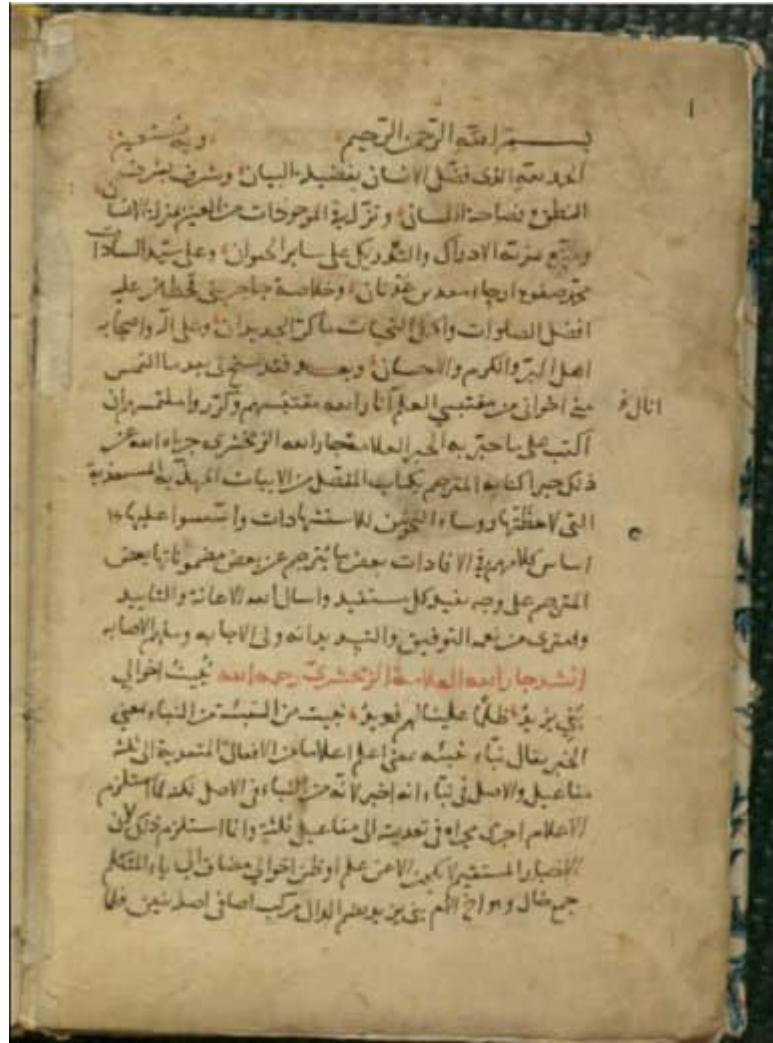 ١
بسم الله الرحمن الرحيم وبه نستعين
الحمد لله الذى فضل الانسان بفضيلة البيان وشرف بشرف
المنطق وفصاحة اللسان ونزله فى الموجودات من العين بمنزلة الانسان
بمزية الادراك والنطق على ساير الحيوان وعلى سيد السادات
محمد صفوة معد بن عدنان وخلاصة بنى قحطان عليه
افضل الصلوات التحيات ما كر الجديدان وعلى اله واصحابه
اهل البر والكرم والاحسان وبعد فقد سنح لى بعد ما التمس
منى اخوانى من مقتبسى العلم انار الله مقتبسهم وكرروا ملتمسهم ان
انالهم
اكتب على ما حبر به الحبر العلامة جار الله الزمخشرى جزاه الله عن
ذلك خيرا كتابه المترجم بكتاب المفصل من الابيات المهذبة المستعذبة
التى للاستشهادات واسسوا عليها
اساس كلامهم فى الافادات بعض ما يترجم عن بعض مضموناتها بعض
المترجم على وجه يفيد كل مستفيد واسال الله الاعانة والتاييد
من التوفيق والتسديد انه ولى الاجابه وملهم الاصابه
انشد جار الله العلامة الزمخشرى رحمه الله نبئت اخوالي
بنى يزيد ظلما علينا لهم فديد نبئت من التنبئة من النباء بمعنى
الخبر يقال نباء بمعنى اعلم اعلاما من الافعال المتعدية الى ثلثة
مفاعيل والاصل فى نباء انه اخبر لانه من النباء فى الاصل لكنه لما استلزم
الاعلام اجرى مجراه فى تعديته الى مفاعيل ثلثة وانما استلزم ذلك لان
الاخبار المستقيم لا يكون الا عن علم او ظن اخوالي مضاف الى ياء المتكلم
جمع خال وهو اخ الام بنى يزيد بضم الدال مركب اضافى اصله بنين فلما